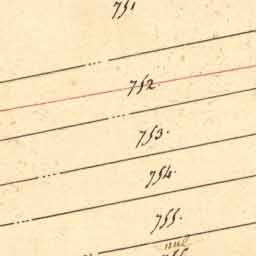 751
752.
753.
754.
755.
nul